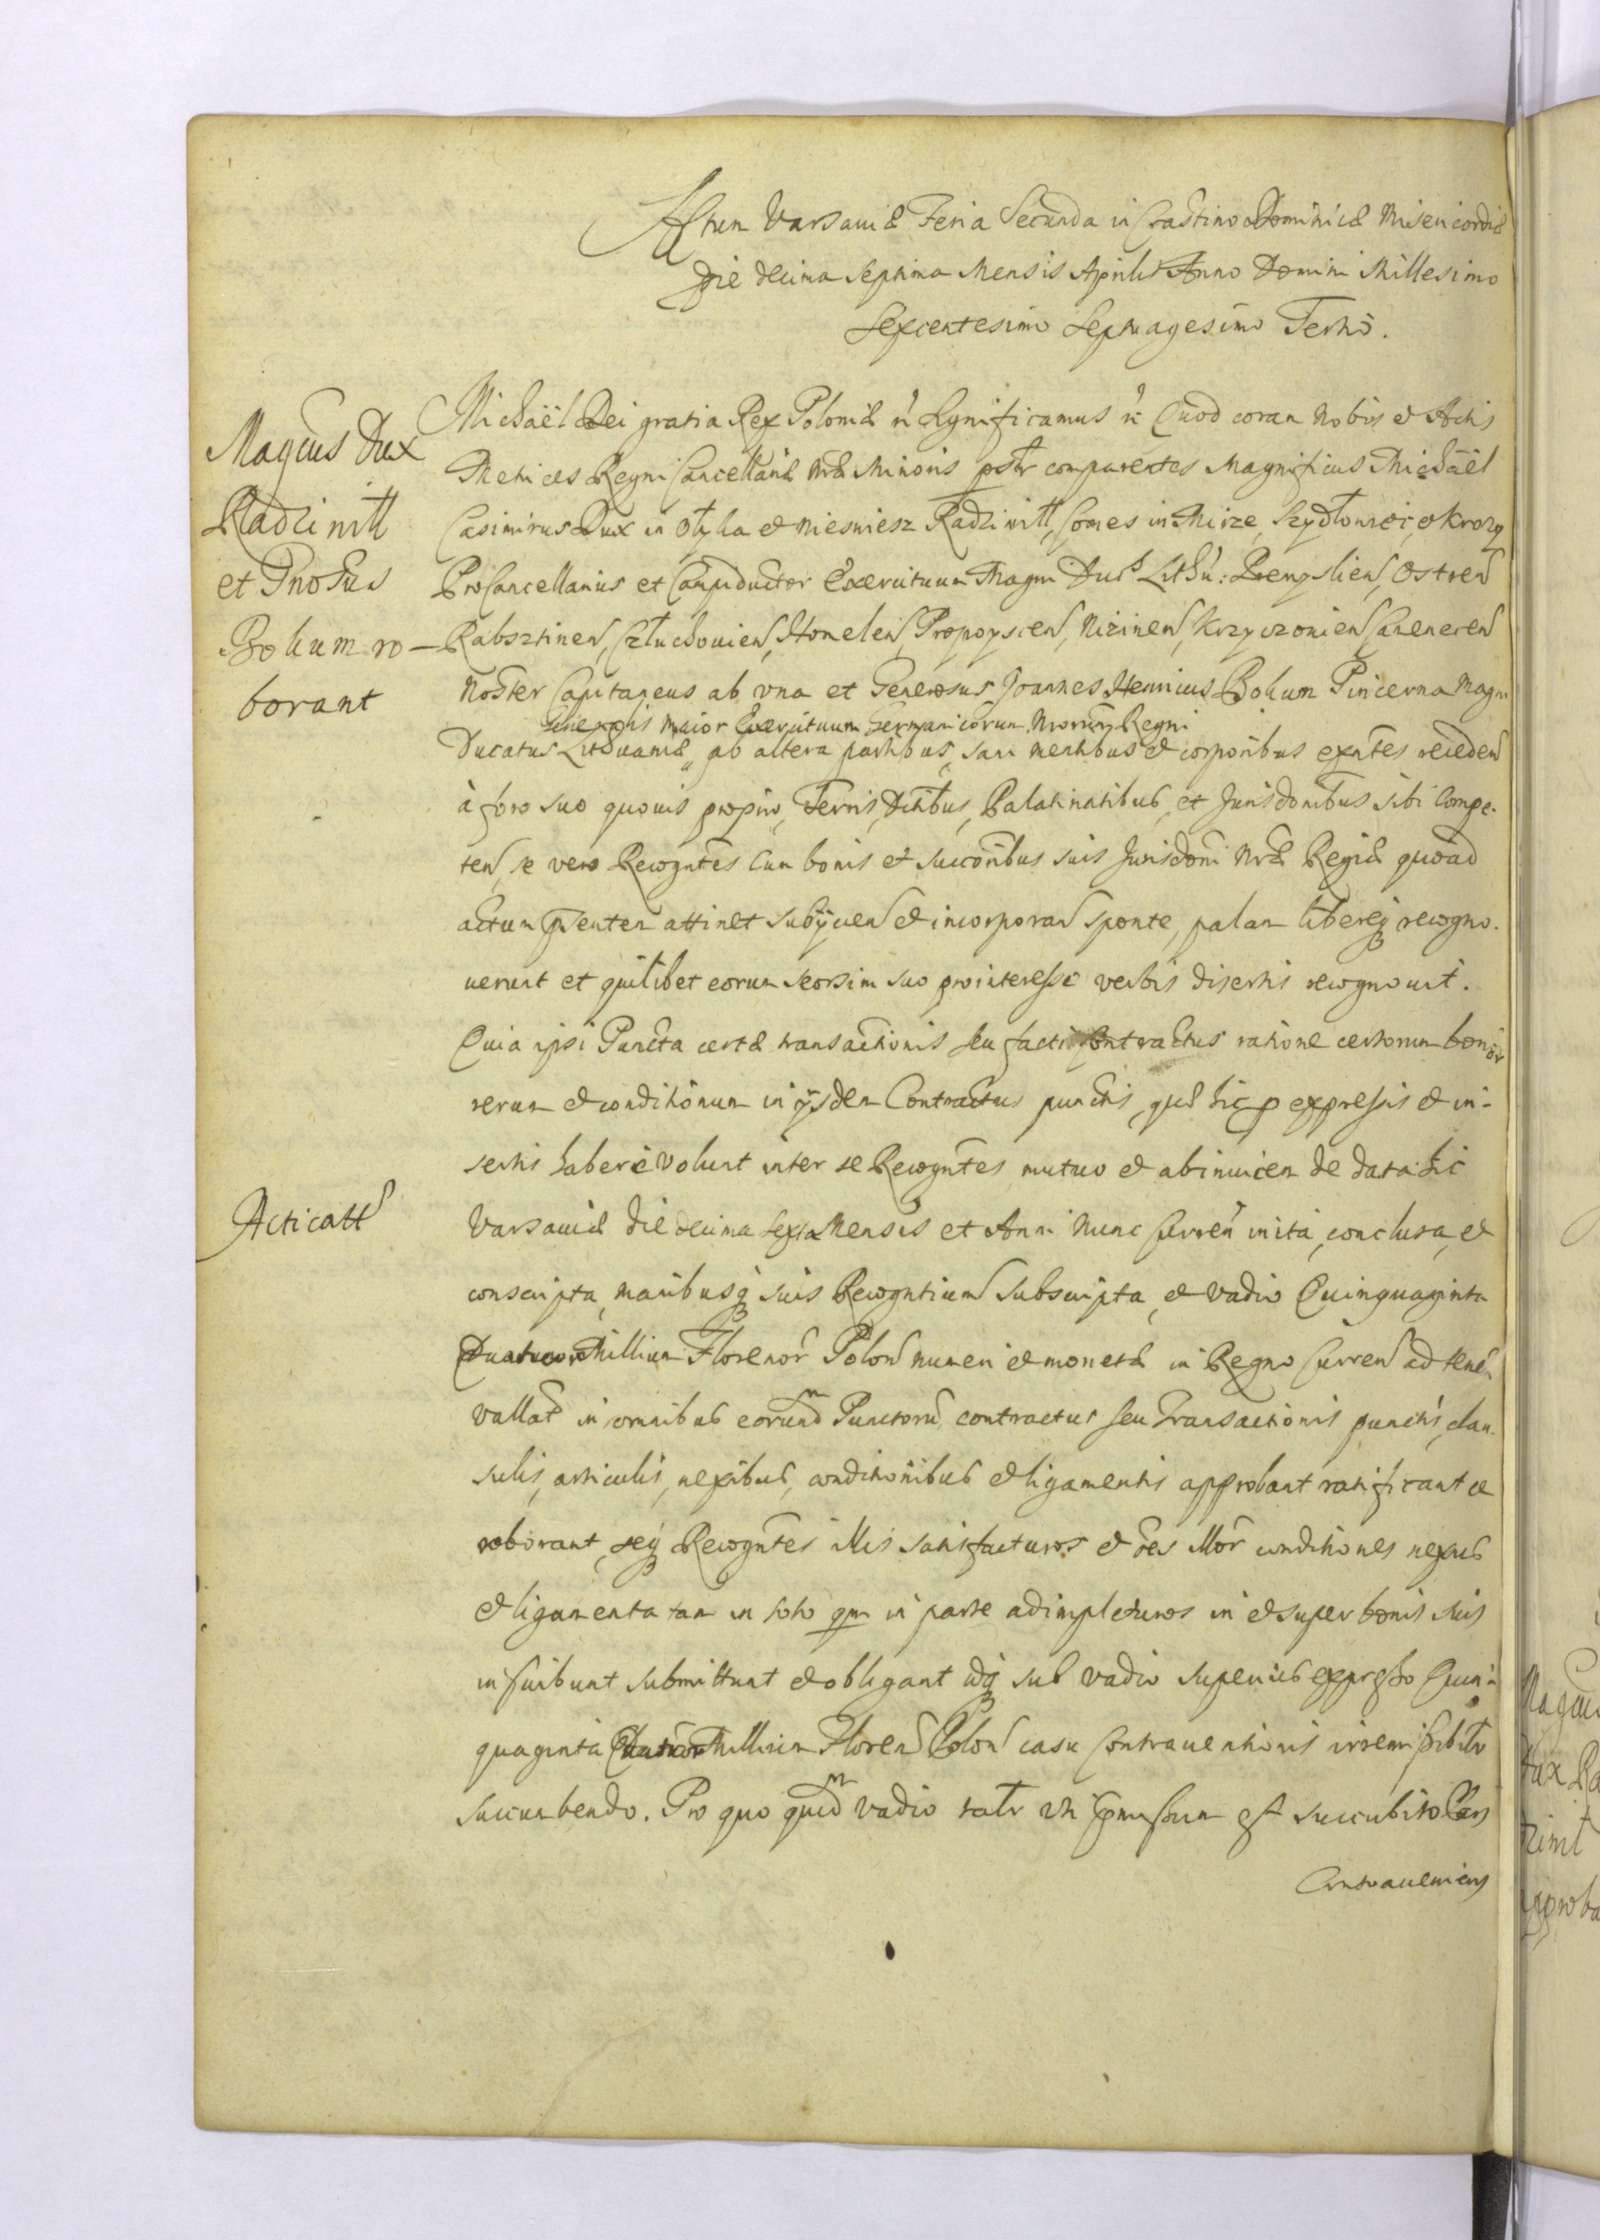 Actum Varsauiæ Feria Secunda in Crastino Dominicæ Misericordiæ
Die decima septima Mensis Aprilis Anno Domini Millesimo
Sexcentesimo Septuagesimo Tertio.
Magcus Dux
Radziwill
et Gnosus
Bokum ro-
borant
Michaël Dei gratia Rex Poloniæ &c Significamus &c Quod coram Nobis et Actis
Metrices Regni Cancellariæ Nræ Minoris psltr comparentes Magnificus Michaël
Casimirus Dux in Olyka et Nieswiesz Radziwill, Comes in Mirze, Szydłowiec, et Krozy
ProCancellarius et Campiductor Exercituum Magni Ducs Lithu: Premyslien, Ostren
Rabsztinen, Człuchouien, Homelen, Propoyscen, Nizinen, Krzyczouien Caneneren
Noster Capitaneus ab vna et Generosus Joannes Henricus Bokum Pincerna Magni
Generalis Maior Exercituum Germanicorum Nrorum Regni
Ducatus Lithuaniæ ab altera partibus, sani mentibus et corporibus exntes receden
à foro suo quouis proprio, Terris, Dctibus, Palatinatibus, et Jurisdonibus sibi compe-
ten, se vero Recogntes cum bonis et succoribus suis Jurisdoni Nræ Regiæ quoad
actum pñtem attinet subijcien et incorporan sponte, palam libereq recogno-
uerunt et quilibet eorum seorsim suo pro interesse verbis disertis recognouit.
Quia ipsi Puncta certæ transactionis seu facti Contractus ratione certorum bonor
rerum et conditionum in ijsdem Contractus punctis, quæ hic p expressis et in-
sertis haberi volunt inter se Recogntes mutuo et abinuicem de data hic
Acticatt
Varsauiæ die decima sexta Mensis et Anni nunc curren inita, conclusa, et
conscripta, manibusq suis Recogntium subscripta, et vadio Quinquaginta
Quatuor Millium Florenor Polon numeri et monetæ in Regno curren ad tene
vallat in omnibus eorundm Punctoru contractus seu Transactionis punctis, clau-
sulis, articulis, nexibus, conditionibus et ligamentis approbant ratificant et
roborant, seq Recogntes illis satisfacturos et oes illor conditiones nexus
et ligamenta tam in toto qm in parte adimpleturos in et super bonis suis
inscribunt submittunt et obligant idq sub vadio superius expresso Quin-
quaginta Quatuor Millium Floren Polon casu contrauentionis irremissibiltr
succumbendo. Pro quo quidm vadio tatr vti pmissum est succubito Pars
Contraueniens
Magcus
Dux Ra
dziwil
approba